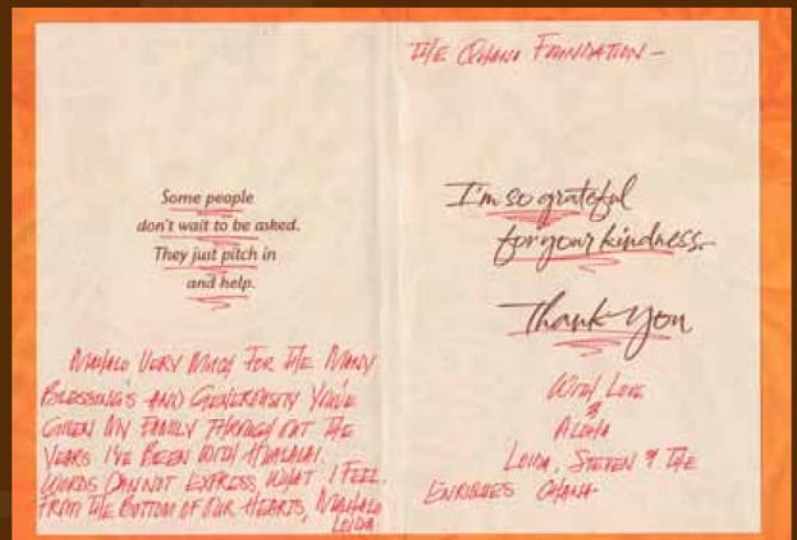 Some people
don't wait to be asked.
They just pitch in
and help.
MAHALO VERY MUCH FOR THE MANY
BLESSING'S AND GENEROSITY YOU'VE
GIVEN MY FAMILY THROUGH OUT THE
YEARS I'VE BEEN WITH HUALALAI.
WORDS CANNOT EXPRESS WHAT I FEEL.
FROM THE BOTTOM OF OUR HEARTS, MAHALO
LOIDA
THE OHANA FOUNDATION –
I'm so grateful
for your kindness.
Thank You
WITH LOVE
&
ALOHA
LOIDA, STEVEN & THE
ENRIQUES OHANA